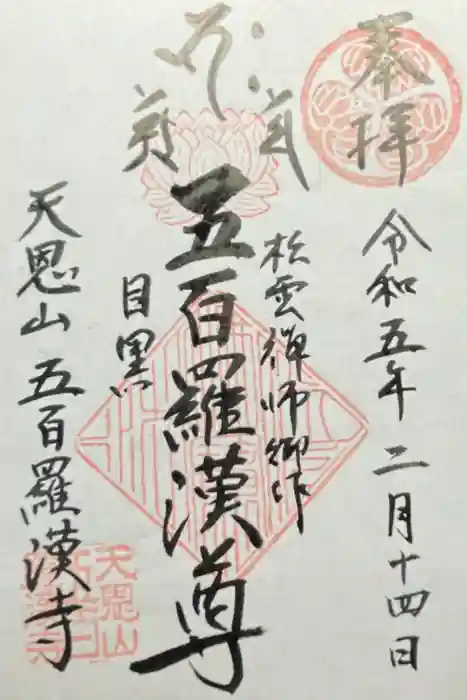 奉拝
令和五年二月十四日
松雲禅師御作
五百羅漢尊
目黒
天恩山五百羅漢寺
天恩山